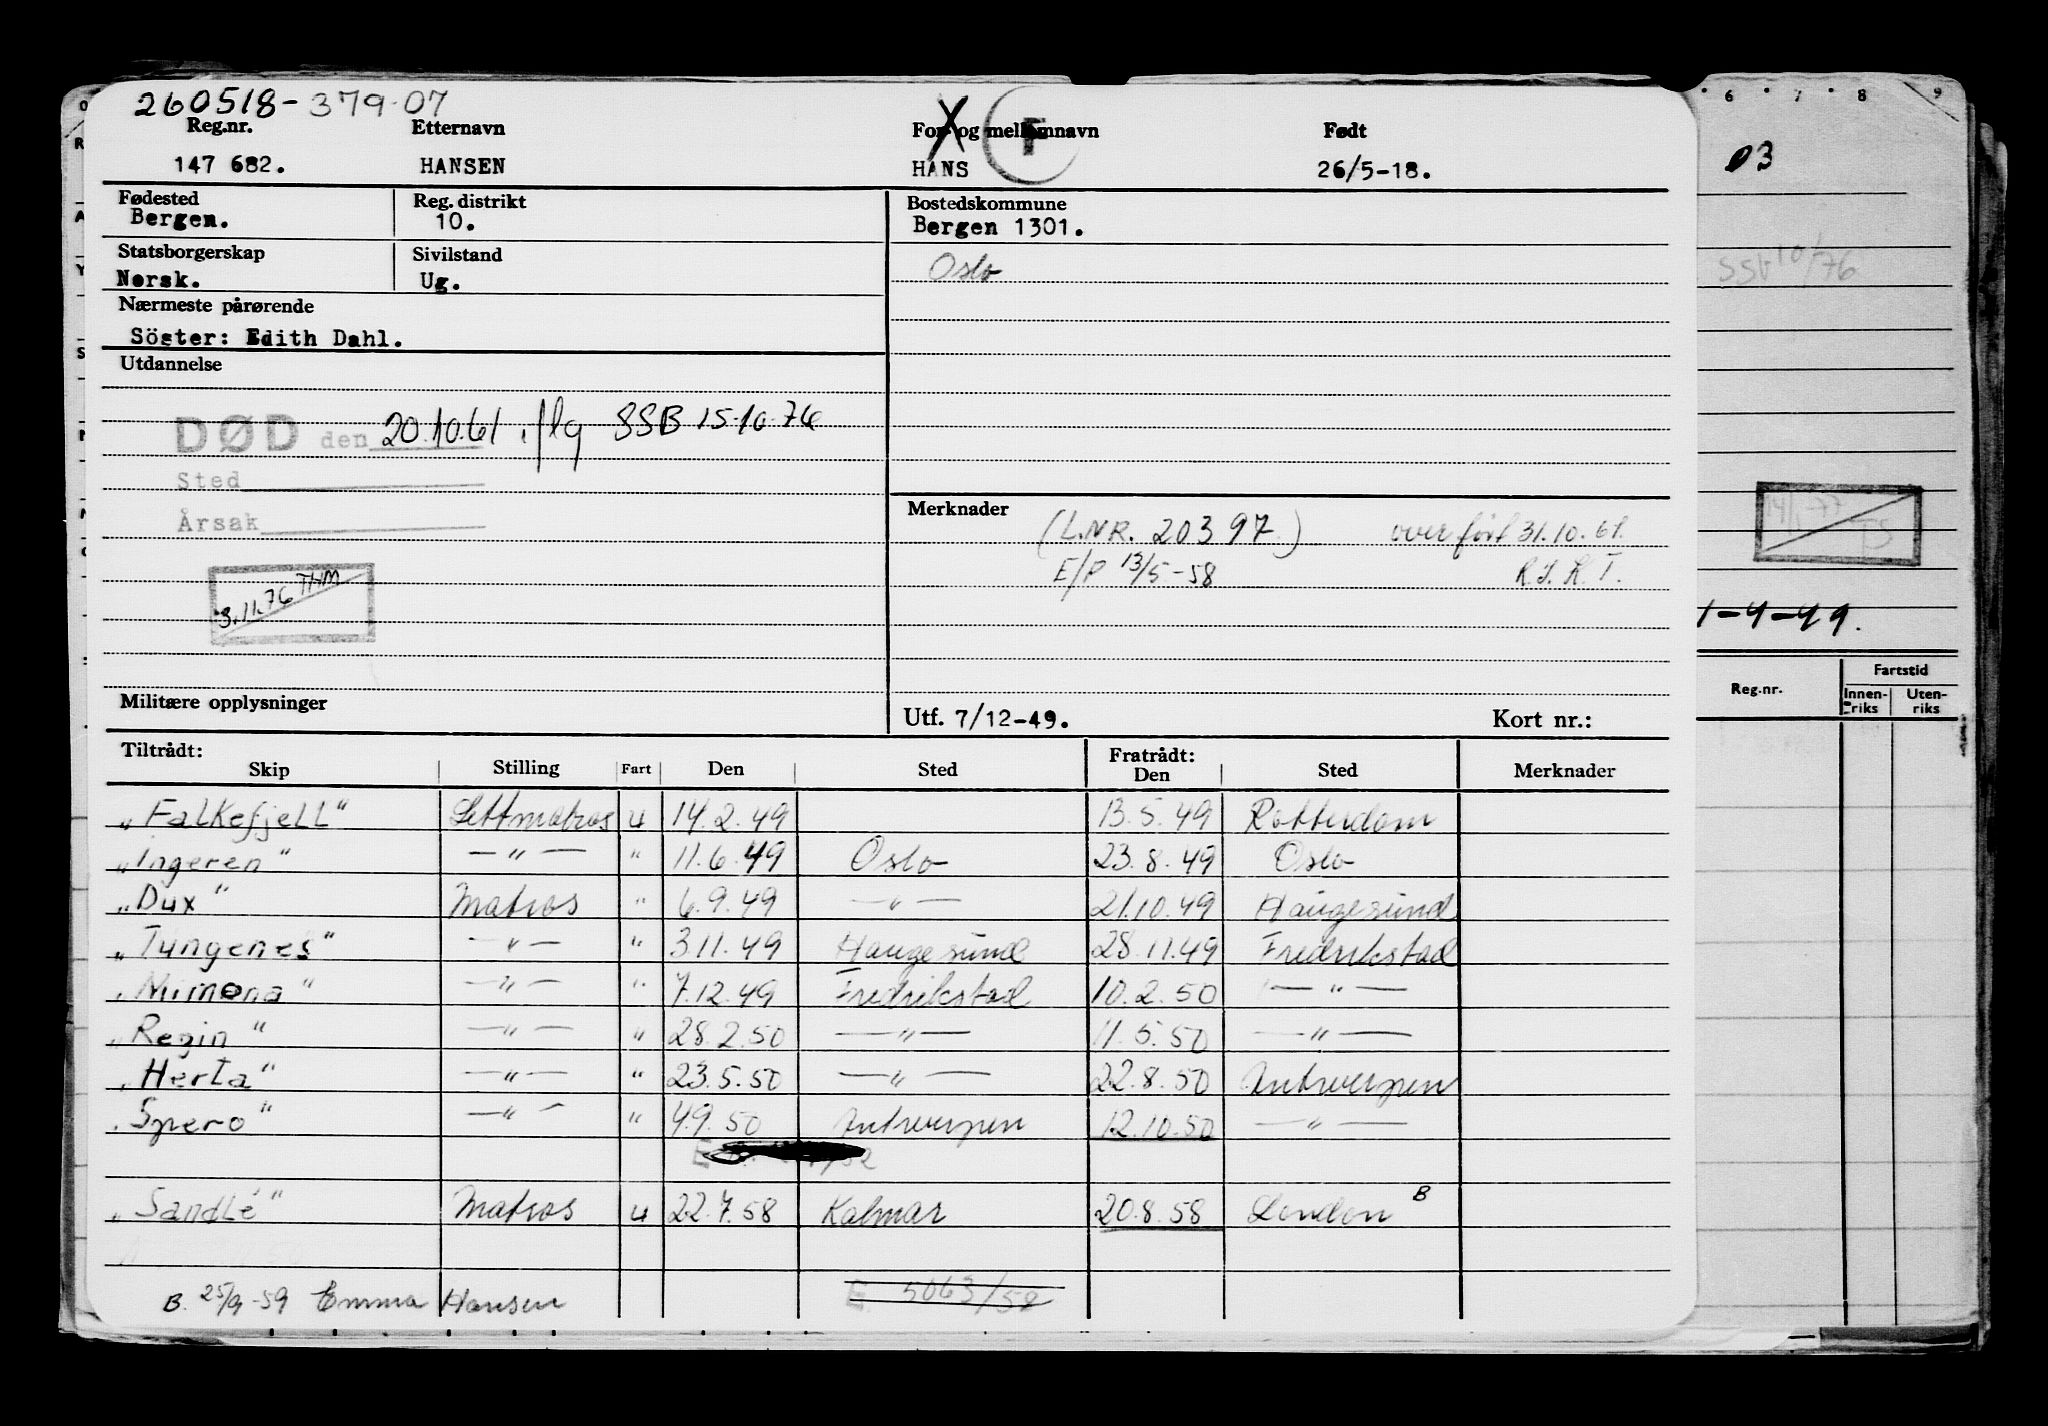 260518-379-07
Reg.nr. Etternavn For- og mellomnavn Født
F
147 682. HANSEN HANS 26/5-18.
Fødested Reg. distrikt Bostedskommune
Bergen. 10. Bergen 1301.
Statsborgerskap Sivilstand Oslo
Norsk. Ug.
Nærmeste pårørende
Söster: Edith Dahl.
Utdannelse
DØD den 20.10.61 iflg SSB 15.10.76
Sted
Årsak
3.11.76 THM
Merknader
(L.NR. 20397) overført 31.10.61.
E/P 13/5-58
Militære opplysninger Utf. 7/12-49. Kort nr.:
Tiltrådt: Fratrådt:
Skip Stilling Fart Den Sted Den Sted Merknader
„Falkefjell" Lettmatros u 14.2.49 13.5.49 Rotterdam
„Ingeren" —"— " 11.6.49 Oslo 23.8.49 Oslo
„Dux" Matros " 6.9.49 —"— 21.10.49 Haugesund
„Tungenes" —"— " 3.11.49 Haugesund 28.11.49 Fredrikstad
„Mimona" —"— " 7.12.49 Fredrikstad 10.2.50 —"—
„Regin" —"— " 28.2.50 —"— 11.5.50 —"—
„Herta" —"— " 23.5.50 —"— 22.8.50 Antwerpen
„Spero" —"— " 4.9.50 Antwerpen 12.10.50 —"—
„Sandle" Matros u 22.7.58 Kalmar 20.8.58 London B
B. 25/9-59 Emma Hansen E. 5063/58
6 7 8 9
03
SSB 10/76
14/1-77 TS
1-4-49.
Reg.nr. Fartstid
Innen-riks Uten-riks